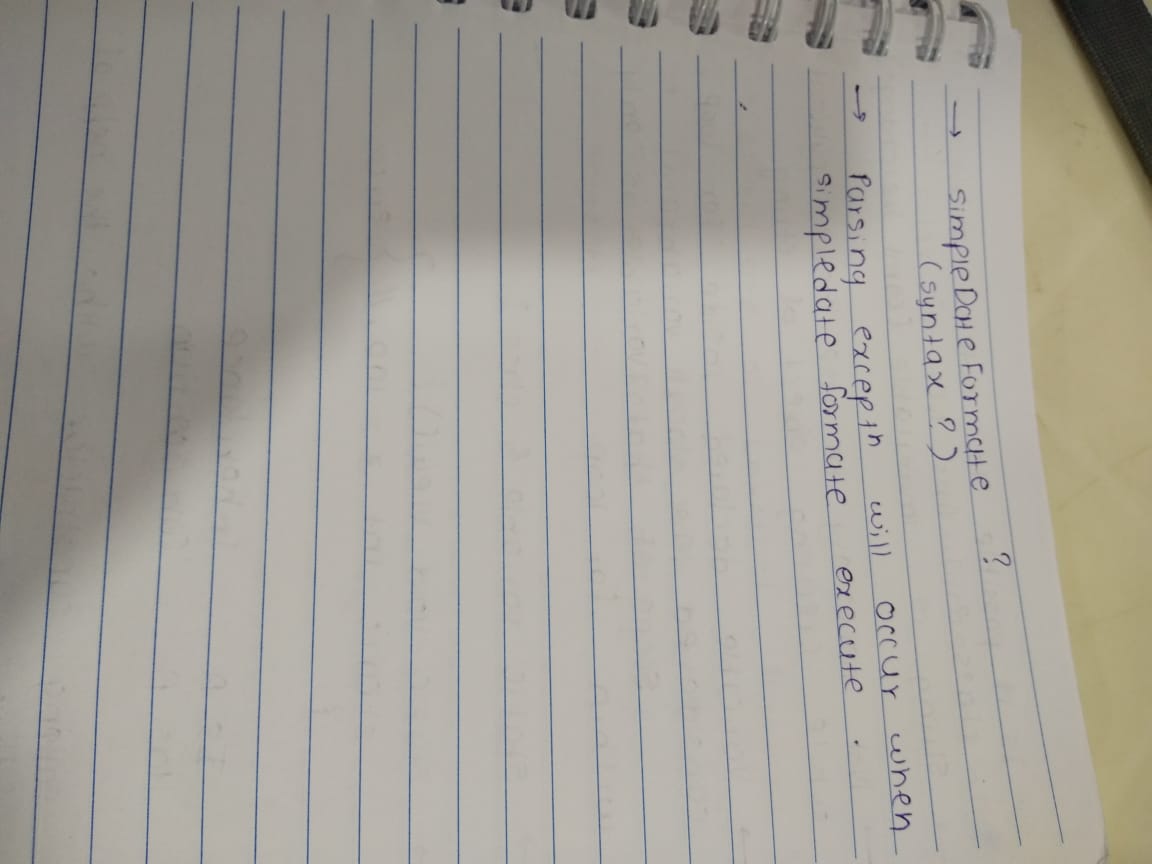 → simpleDateFormate ?
(syntax ?)
→ Parsing excepth will occur when
simpledate formate execute .